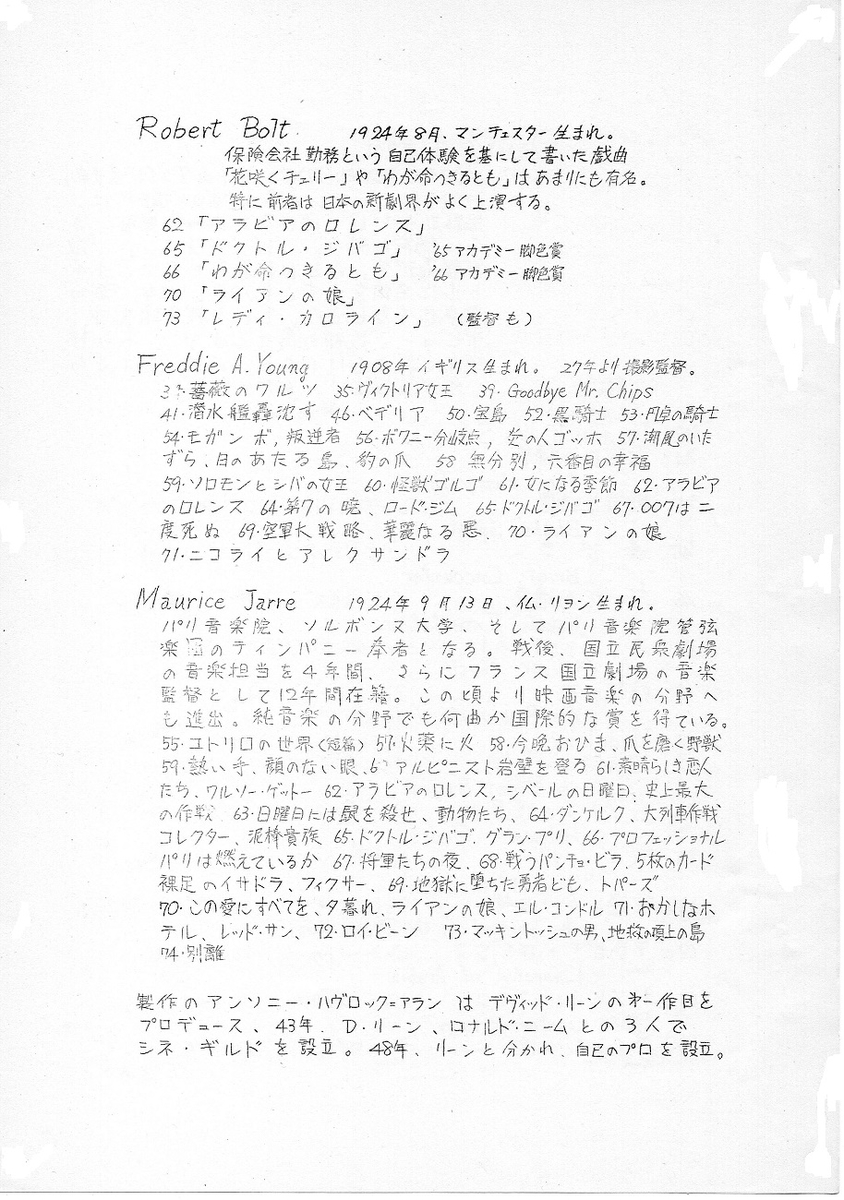 Robert Bolt 1924年8月、マンチェスター生まれ。
保険会社勤務という自己体験を基にして書いた戯曲
「花咲くチェリー」や「わが命つきるとも」はあまりにも有名。
特に前者は日本の新劇界がよく上演する。
62 「アラビアのロレンス」
65 「ドクトル・ジバゴ」 '65アカデミー脚色賞
66 「わが命つきるとも」 '66アカデミー脚色賞
70 「ライアンの娘」
73 「レディ・カロライン」 (監督も)
Freddie A. Young 1908年イギリス生まれ。 27年より撮影監督。
薔薇のワルツ 35・ヴィクトリア女王 39・Goodbye Mr. Chips
41・潜水艦轟沈す 46・ベデリア 50・宝島 52・黒騎士 53・円卓の騎士
54・モガンボ, 叛逆者 56・ボワニー分岐点, 炎の人ゴッホ 57・潮風のいた
ずら、日のあたる島、豹の爪 58 無分別, 六番目の幸福
59・ソロモンとシバの女王 60・怪獣ゴルゴ 61・女になる季節 62・アラビア
のロレンス 64・第7の暁、ロード・ジム 65・ドクトル・ジバゴ 67・007は二
度死ぬ 69・空軍大戦略、華麗なる悪. 70・ライアンの娘
71・ニコライとアレクサンドラ
Maurice Jarre 1924年9月13日、仏・リヨン生まれ。
パリ音楽院、ソルボンヌ大学、そしてパリ音楽院管弦
楽団のティンパニー奏者となる。戦後、国立民衆劇場
の音楽担当を4年間、さらにフランス国立劇場の音楽
監督として12年間在籍。この頃より映画音楽の分野へ
も進出。純音楽の分野でも何曲か国際的な賞を得ている。
55・ユトリロの世界(短篇) 57・火薬に火 58・今晩おひま、爪を磨く野獣
59・熱い手、顔のない眼、アルピニスト岩壁を登る 61・素晴らしき恋人
たち、ワルソー・ゲットー 62・アラビアのロレンス, シベールの日曜日、史上最大
の作戦 63・日曜日には鼠を殺せ、動物たち、64・ダンケルク、大列車作戦
コレクター、泥棒貴族 65・ドクトル・ジバゴ. グラン・プリ、66・プロフェッショナル
パリは燃えているか 67・将軍たちの夜、68・戦うパンチョ・ビラ、5枚のカード
裸足のイサドラ、フィクサー、69・地獄に堕ちた勇者ども、トパーズ
70・この愛にすべてを、夕暮れ、ライアンの娘、エル・コンドル 71・おかしなホ
テル、レッド・サン、72・ロイ・ビーン 73・マッキントッシュの男、地球の頂上の島
74・別離
製作のアンソニー・ハヴロック=アランはデヴィッド・リーンの第一作目を
プロデュース、43年. D・リーン、ロナルド・ニームとの3人で
シネ・ギルドを設立。48年、リーンと分かれ、自己のプロを設立。